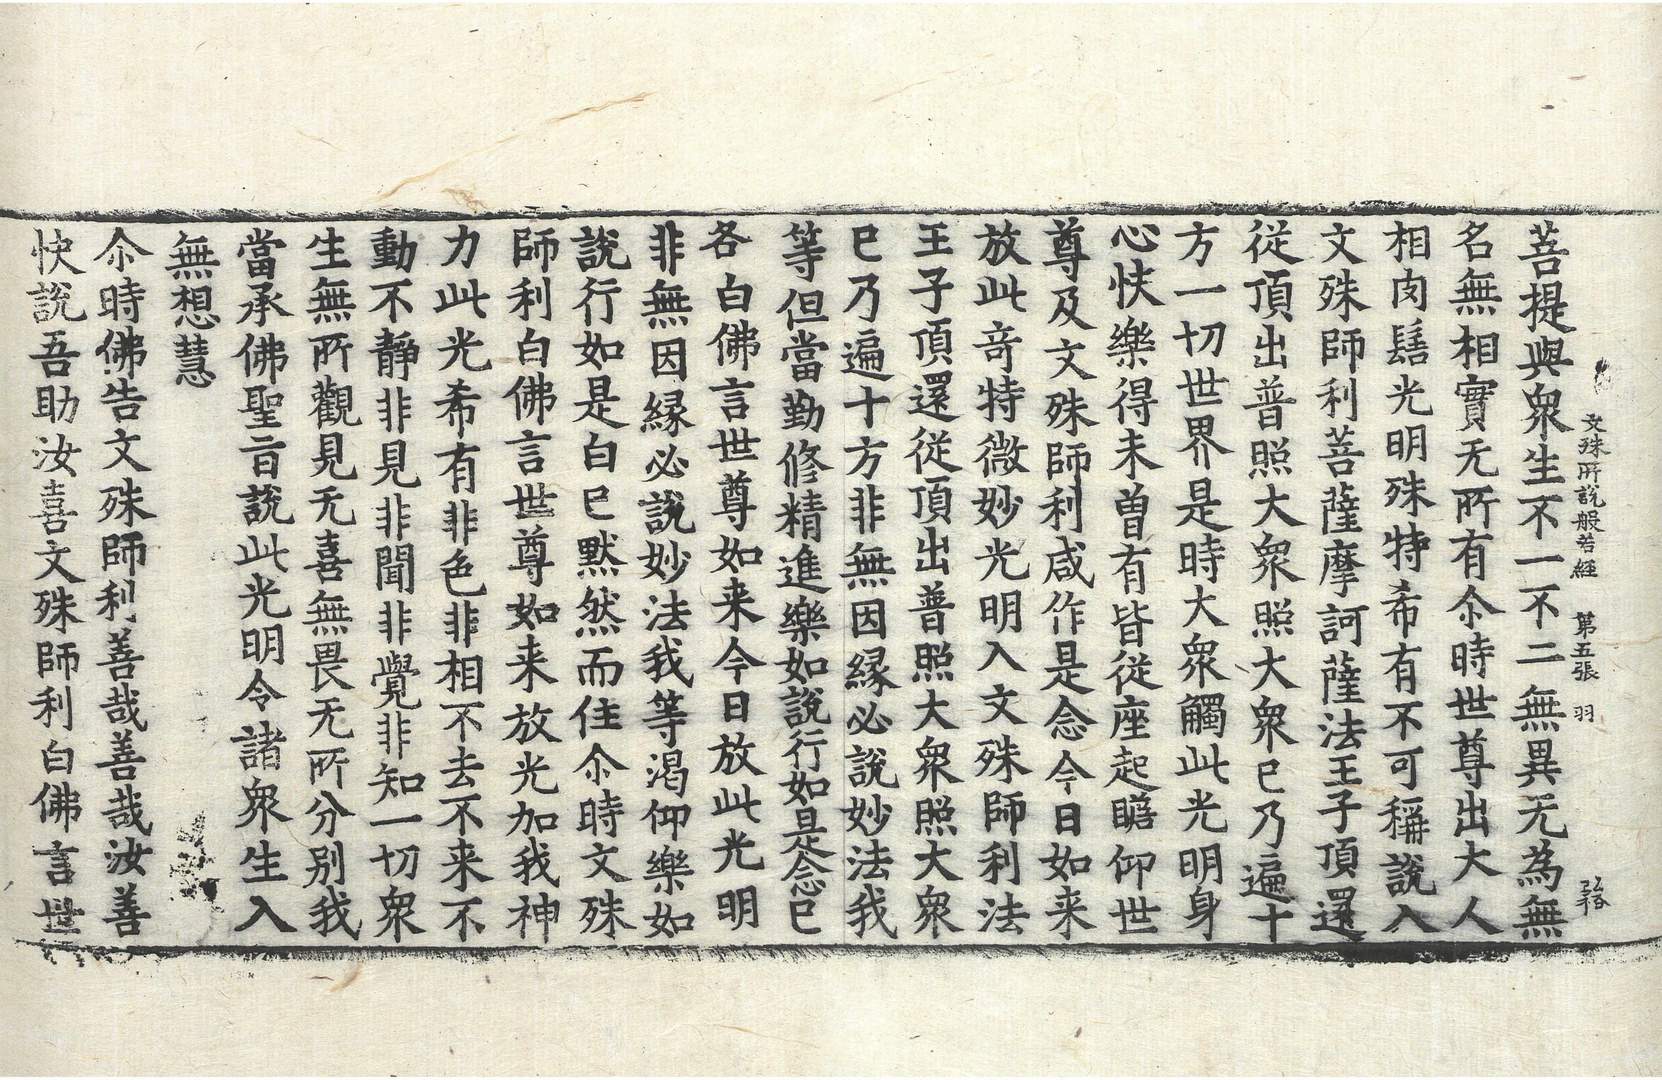 文殊所説般若經　第五張　羽
菩提與衆生不一不二無異无為無
名無相實无所有尒時世尊出大人
相肉髻光明殊特希有不可稱說入
文殊師利菩薩摩訶薩法王子頂還
從頂出普照大衆照大衆已乃遍十
方一切世界是時大衆觸此光明身
心快樂得未曽有皆從座起瞻仰世
尊及文殊師利咸作是念今日如来
放此竒特微妙光明入文殊師利法
王子頂還從頂出普照大衆照大衆
已乃遍十方非無因縁必說妙法我
等但當勤修精進樂如說行如是念已
各白佛言世尊如来今日放此光明
非無因縁必說妙法我等渴仰樂如
說行如是白已黙然而住尒時文殊
師利白佛言世尊如来放光加我神
力此光希有非色非相不去不来不
動不靜非見非聞非覺非知一切衆
生無所觀見无喜無畏无所分别我
當承佛聖旨說此光明令諸衆生入
無想慧
尒時佛告文殊師利善哉善哉汝善
快說吾助汝喜文殊師利白佛言世